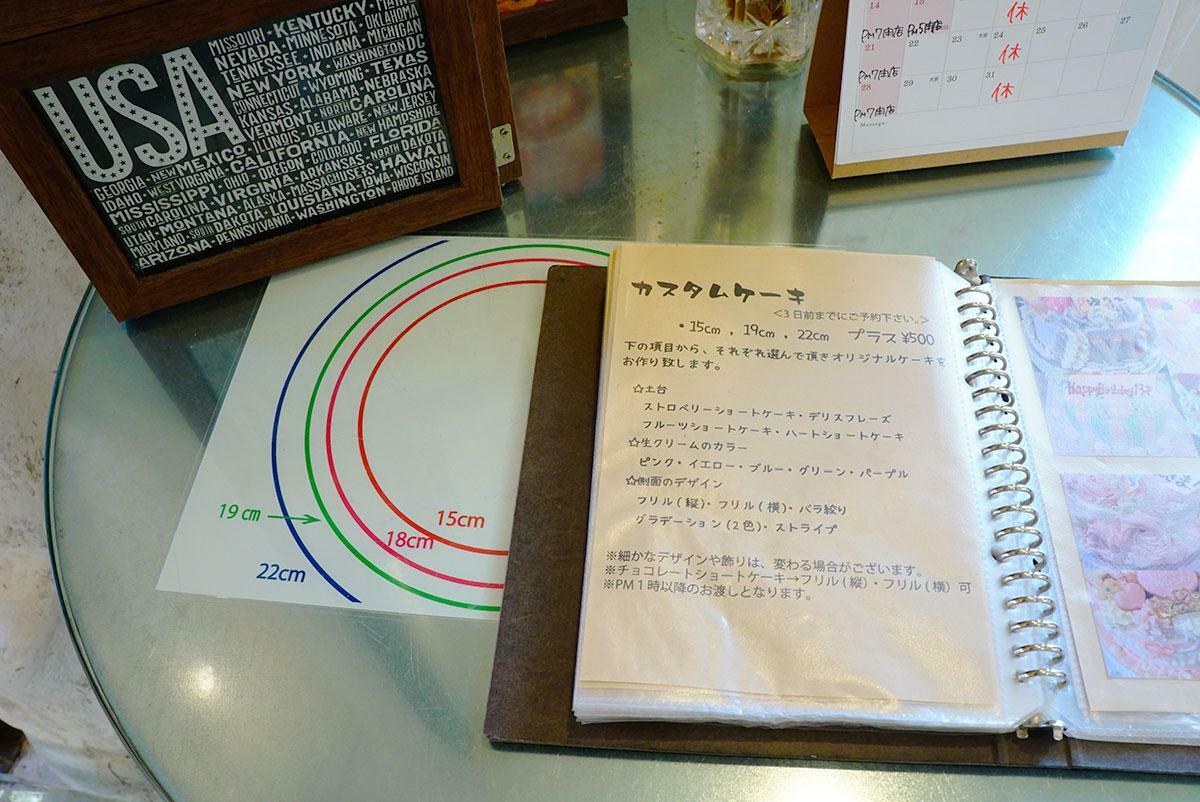 USA
MISSOURI · KENTUCKY · MAINE
NEVADA · MINNESOTA · OKLAHOMA
TENNESSEE · INDIANA · MICHIGAN
NEW YORK · WASHINGTON DC
CONNECTICUT · WYOMING · TEXAS
KANSAS · ALABAMA · NEBRASKA
VERMONT · NORTH CAROLINA
ILLINOIS · DELAWARE · NEW JERSEY
GEORGIA · NEW MEXICO · CALIFORNIA · NEW HAMPSHIRE
IDAHO · WEST VIRGINIA · OHIO · OREGON · COLORADO · FLORIDA
MISSISSIPPI · VIRGINIA · ARKANSAS · NORTH DAKOTA
SOUTH CAROLINA · ALASKA · MASSACHUSETTS · HAWAII
UTAH · MONTANA · LOUISIANA · IOWA · WISCONSIN
MARYLAND · SOUTH DAKOTA · WASHINGTON · RHODE ISLAND
ARIZONA · PENNSYLVANIA
14 15 休
PM7閉店 PM5閉店
21 22 23 大安 24 休 25 26 27
PM7閉店
28 29 大安 30 31 休
PM7閉店
Message:
カスタムケーキ
<3日前までにご予約下さい。>
・15cm , 19cm , 22cm プラス¥500
下の項目から、それぞれ選んで頂きオリジナルケーキを
お作り致します。
☆土台
ストロベリーショートケーキ・デリスフレーズ
フルーツショートケーキ・ハートショートケーキ
☆生クリームのカラー
ピンク・イエロー・ブルー・グリーン・パープル
☆側面のデザイン
フリル(縦)・フリル(横)・バラ絞り
グラデーション(2色)・ストライプ
※細かなデザインや飾りは、変わる場合がございます。
※チョコレートショートケーキ→フリル(縦)・フリル(横)可
※PM1時以降のお渡しとなります。
19cm
15cm
18cm
22cm
Happy Birthday